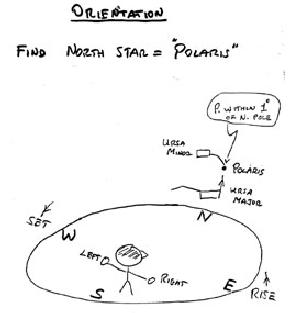 ORIENTATION
FIND NORTH STAR = "POLARIS"
P. WITHIN 1°
OF N. POLE
URSA
MINOR
POLARIS
URSA
MAJOR
N
SET
W
LEFT
RIGHT
S
E
RISE